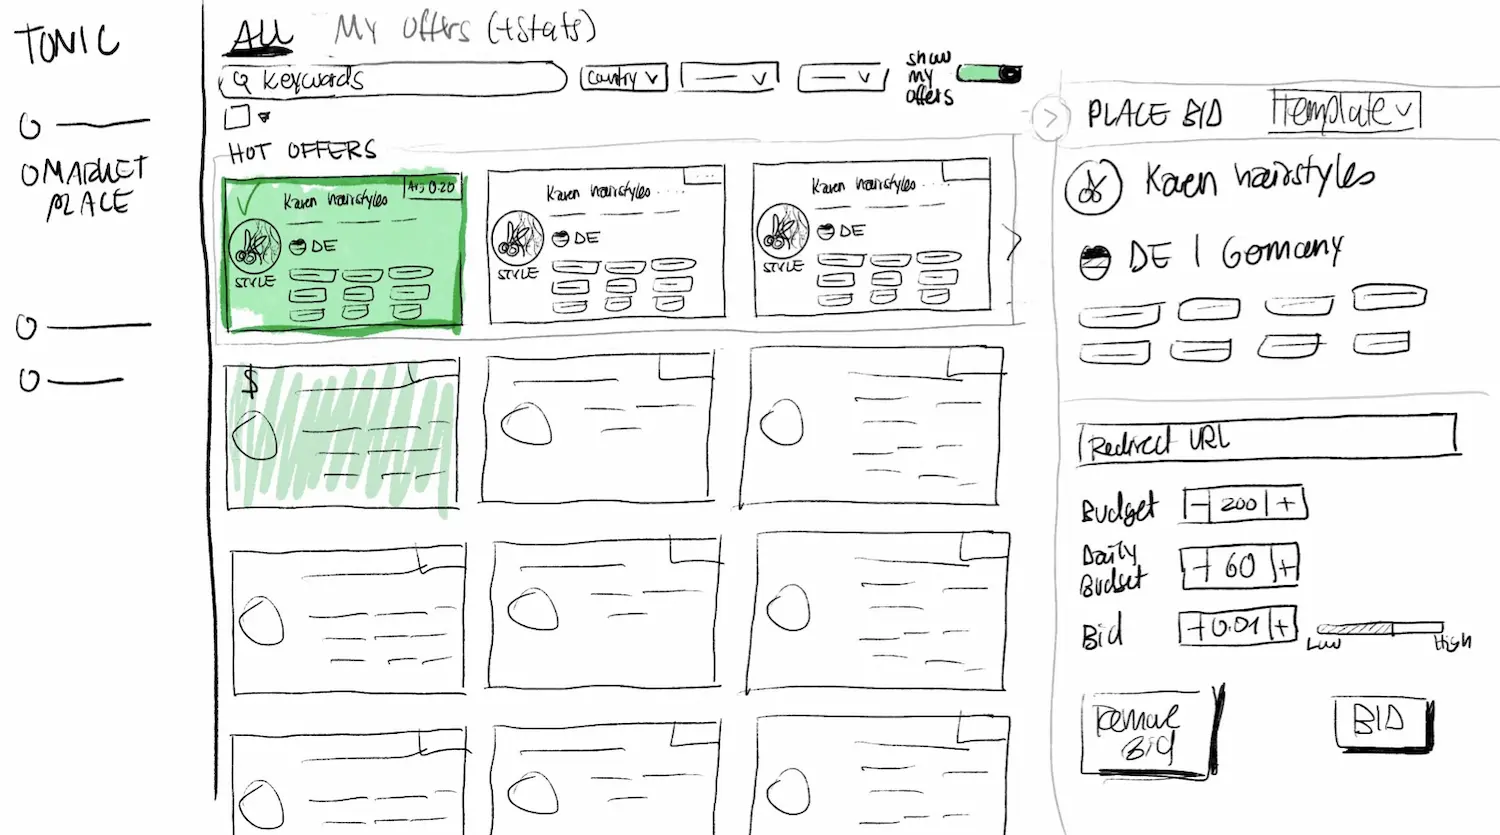 TONIC
MARKET
PLACE
ALL
My Offers (+Stats)
Keywords
Country
show
my
offers
HOT OFFERS
Karen hairstyles
0.20
DE
STYLE
Karen hairstyles ....
DE
STYLE
Karen hairstyles ....
DE
STYLE
$
PLACE BID
Template
Karen hairstyles
DE | Germany
Redirect URL
Budget
- 200 +
Daily
Budget
- 60 +
Bid
- 0.01 +
Low
High
Remove
Bid
BID